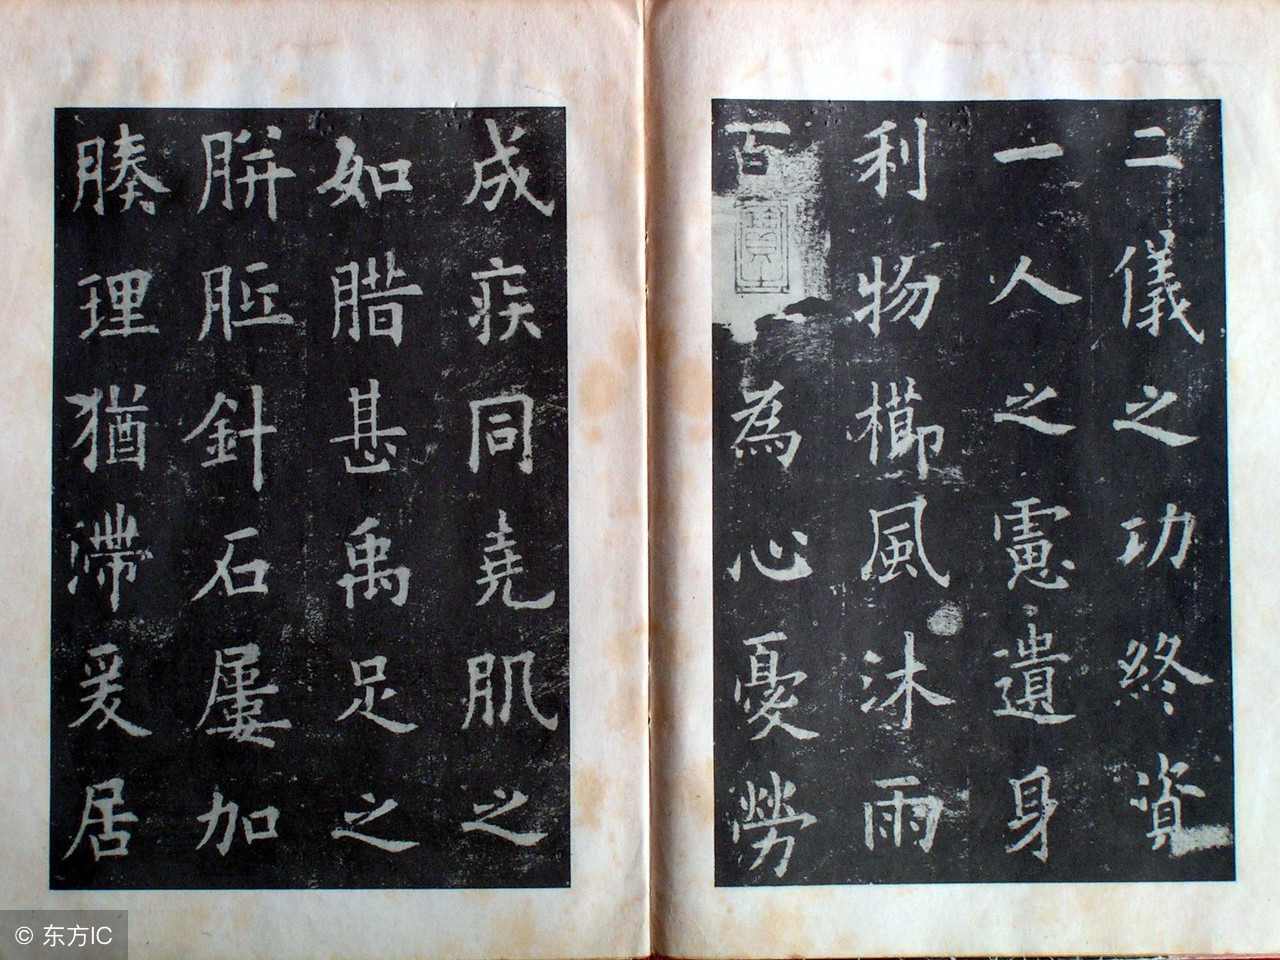 二儀之功終資
一人之慮遺身
利物櫛風沐雨
百
為心憂勞
成疾同堯肌之
如腊甚禹足之
胼胝針石屢加
腠理猶滯爰居
© 东方IC